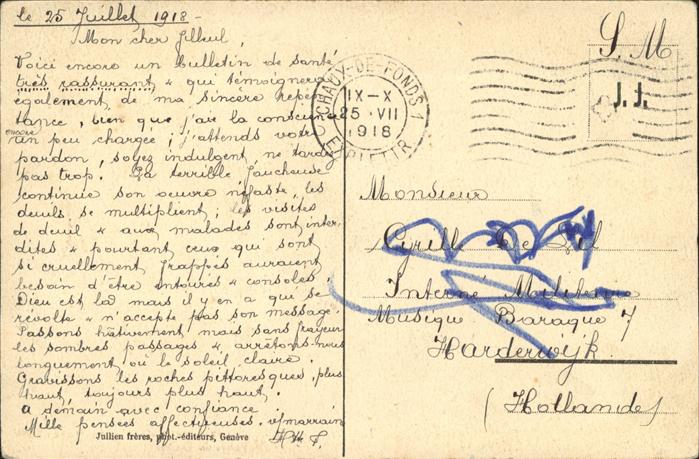 le 25 Juillet 1918 -
Mon cher filleul,
Voici encore un Bulletin de santé
très rassurant & qui témoignera
également de ma sincère repen-
tance, bien que j'aie la conscience
encore
un peu chargée; j'attends votre
pardon, soyez indulgent, ne tardez
pas trop. La terrible faucheuse
continue son oeuvre néfaste, les
deuils se multiplient; les visites
de deuil & aux malades sont inter-
dites & pourtant ceux qui sont
si cruellement frappés auraient
besoin d'être entourés & consolés
Dieu est là mais il y en a qui se
révolte & n'accepte pas son message.
Passons hâtivement mais sans frayeur
les sombres passages & arrêtons-nous
longuement où le soleil claire.
Gravissons les roches pittoresques, plus
haut, toujours plus haut.
A demain avec confiance.
Mille pensées affectueuses. v/marraine
Jullien frères, phot.-éditeurs, Genève
S. M
J. J.
CHAUX-DE-FONDS 1
IX-X
25. VII
1918
Monsieur
Cyrille De
Interné Militaire
Musique Baraque 7
Harderwijk
(Hollande)